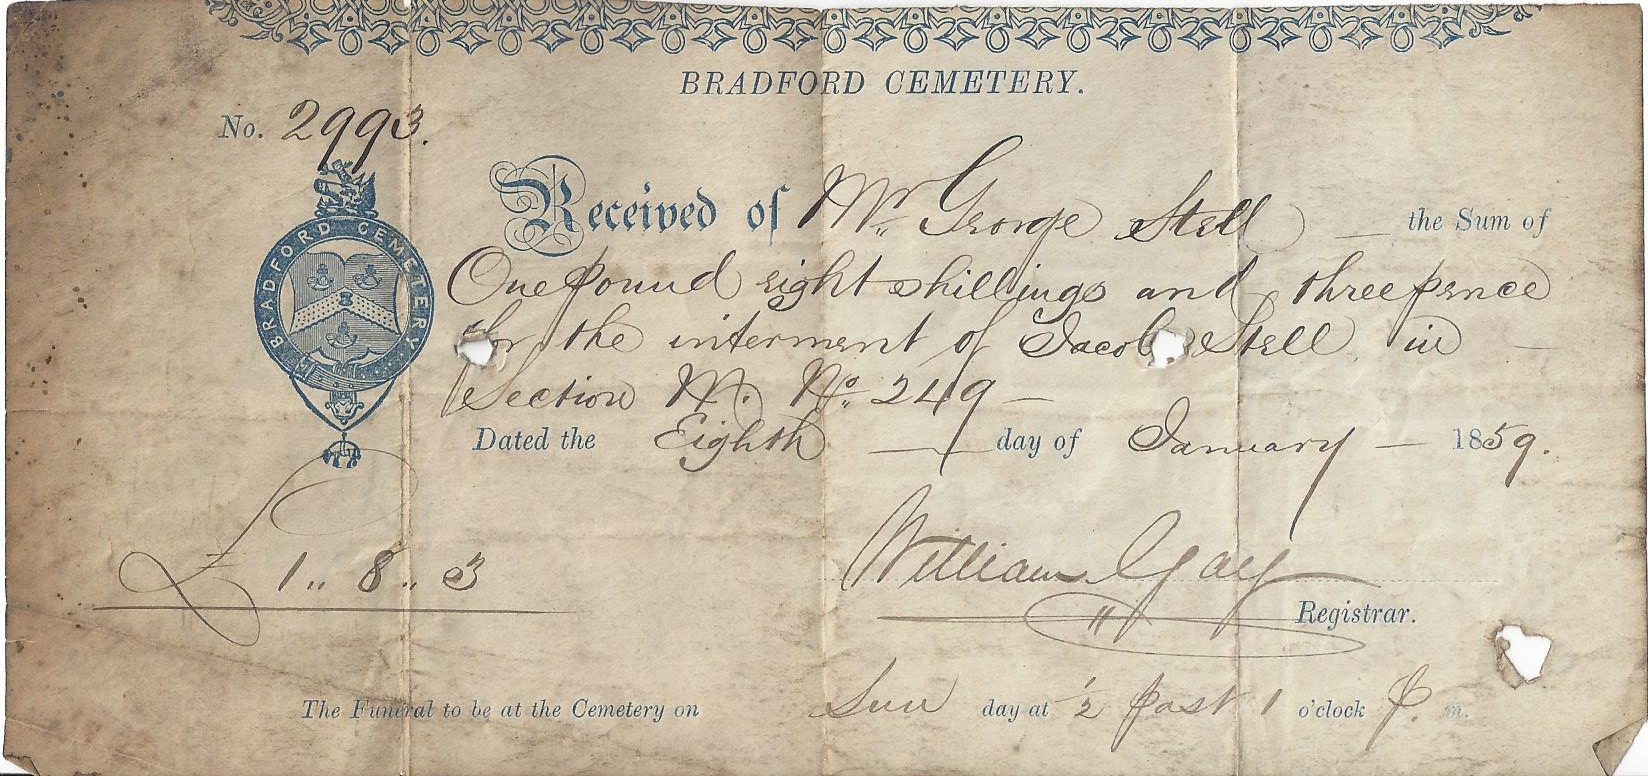 BRADFORD CEMETERY.
No. 2993.
BRADFORD CEMETERY
Received of Mr. George Stell — the Sum of
One pound eight shillings and threepence
for the interment of Jacob Stell in —
Section M. No. 249 —
Dated the Eighth — day of January — 1859.
£ 1 .. 8 .. 3
William Gay
Registrar.
The Funeral to be at the Cemetery on Sun day at ½ past 1 o'clock P. m.